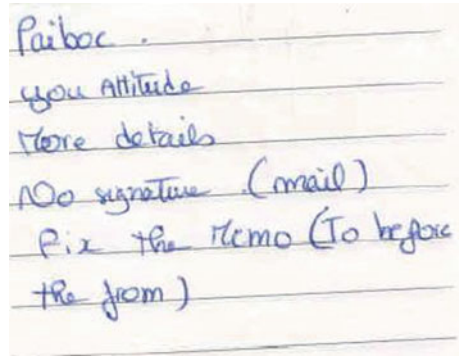 Paiboc.
you Attitude
More details
No signature (mail)
Fix the Memo (To before
the from)